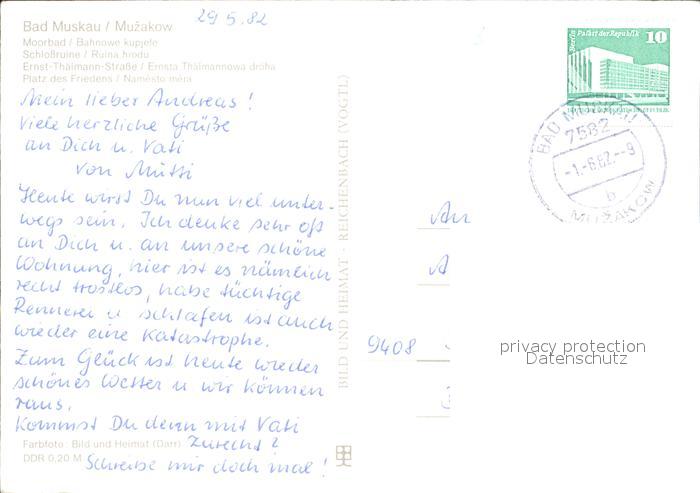 29 5.82
Bad Muskau / Mužakow
Moorbad / Bahnowe kupjele
Schloßruine / Ruina hrodu
Ernst-Thälmann-Straße / Ernsta Thälmannowa dróha
Platz des Friedens / Naměsto měra
Mein lieber Andreas!
Viele herzliche Grüße
an Dich u. Vati
von Mutti
Heute wirst Du nun viel unter-
wegs sein. Ich denke sehr oft
an Dich u. an unsere schöne
Wohnung, hier ist es nämlich
recht trostlos, habe tüchtige
Rennerei u schlafen ist auch
wieder eine Katastrophe.
Zum Glück ist heute wieder
schönes Wetter u wir können
raus.
Kommst Du denn mit Vati
zurecht?
Schreibe mir doch mal!
Farbfoto: Bild und Heimat (Darr)
DDR 0,20 M
BILD UND HEIMAT - REICHENBACH (VOGTL)
Berlin Palast der Republik
10
BAD MUSKAU
7582
-1.-6.82.--9
b
MUŽAKOW
An
A
9408
privacy protection
Datenschutz